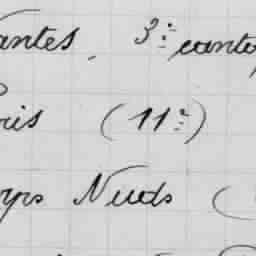 antes, 3e canto
ris (11e)
yps Nuds (